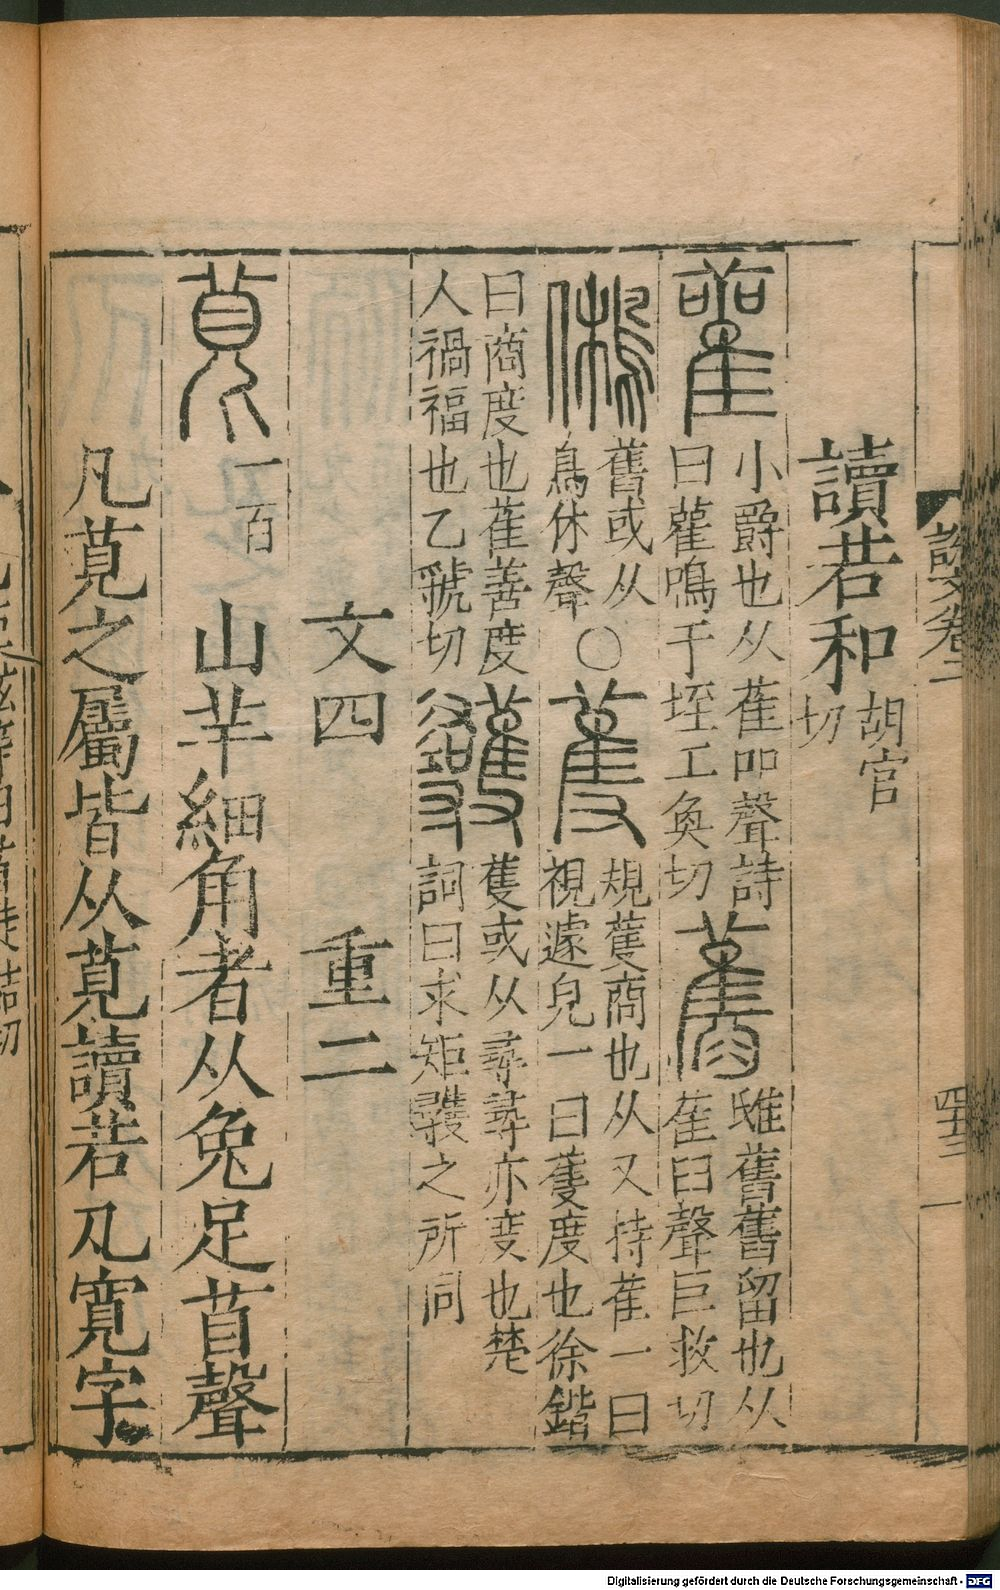 讀若和胡官切
雚 小爵也从萑吅聲詩曰雚鳴于垤工奐切 舊 鴟舊舊留也从萑臼聲巨救切
鵂 舊或从鳥休聲○蒦 規蒦商也从又持萑一曰視遽皃一曰蒦度也徐鍇
曰商度也萑善度人禍福也乙虢切 彠 蒦或从尋尋亦度也楚詞曰求矩彠之所同
文四 重二
萈 一百 山羊細角者从兔足苜聲
凡萈之屬皆从萈讀若丸寬字
說文卷二
一
Digitalisierung gefördert durch die Deutsche Forschungsgemeinschaft - DFG